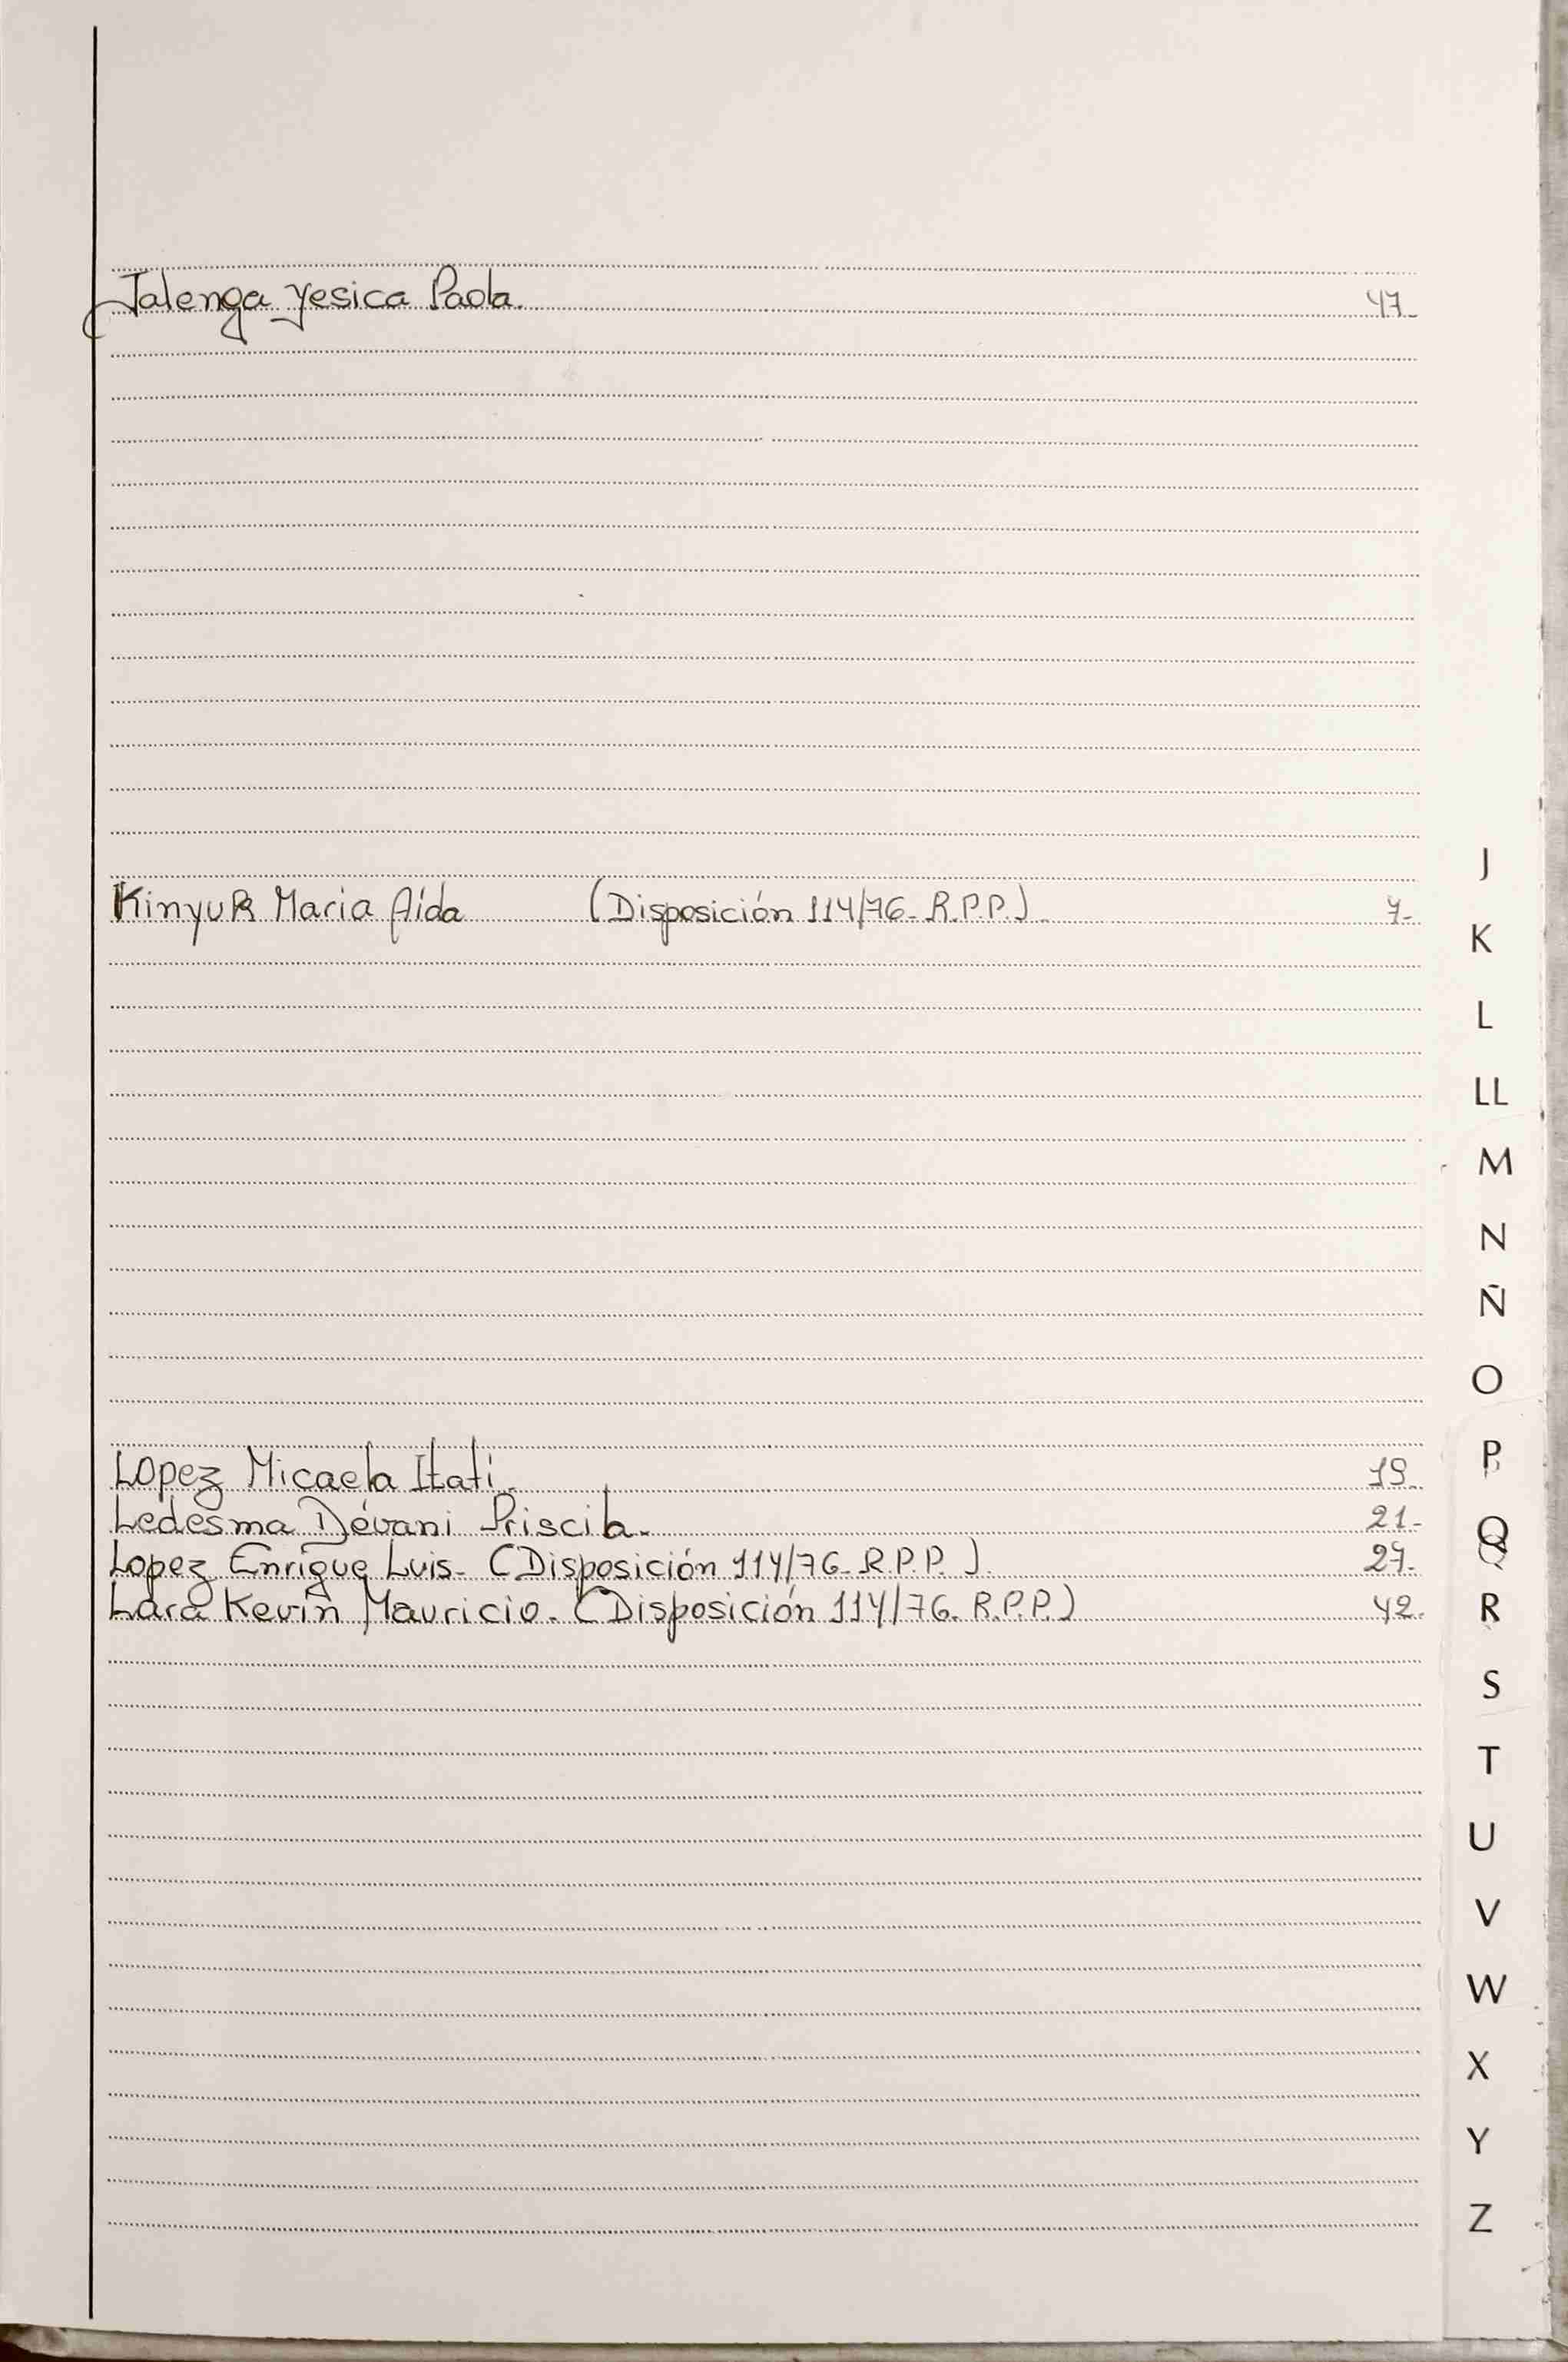 Jalenga Yesica Paola. 47-
J
Kinyuk Maria Aída (Disposición 114/76- R.P.P.)
K
L
LL
M
N
Ñ
O
Lopez Micaela Itatí. 19-
P
Ledesma Dévani Priscila. 21-
Q
Lopez Enrique Luis- (Disposición 114/76- R.P.P.)
Lara Kevin Mauricio. (Disposición 114/76. R.P.P.) 42-
R
S
T
U
V
W
X
Y
Z